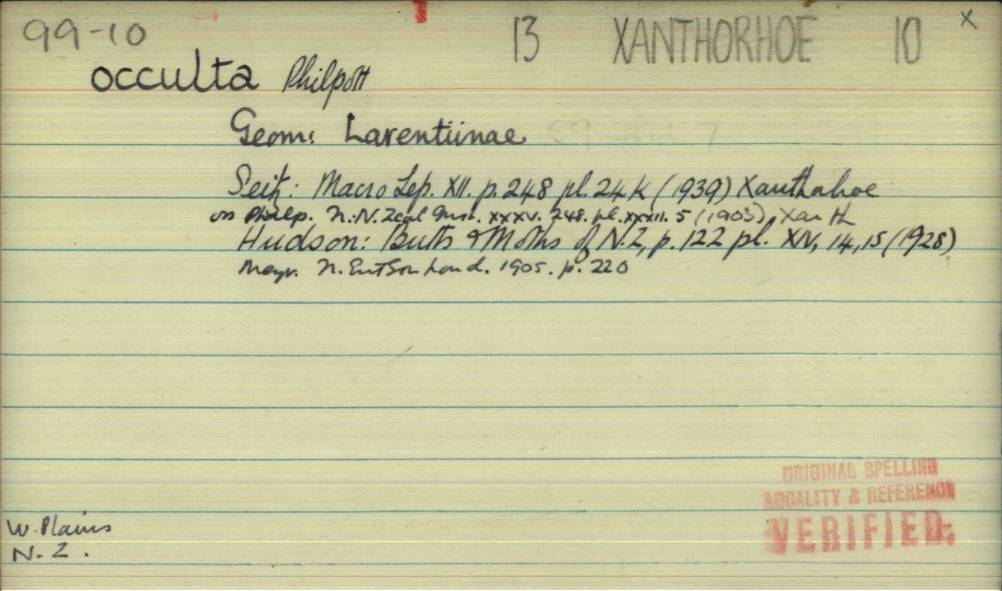 99-10 13 XANTHORHOE 10 x
occulta Philpott
Geom: Larentiinae
Seitz: Macro Lep. XII. p. 248 pl. 24.K (1939) Xanthorhoe
Philp. XXXV. 248. pl. XXXII. 5 (1903) Xanth
Hudson: Butts & Moths of N.Z, p. 122 pl. XIV, 14, 15 (1928)
Meyr. Lond. 1905. p. 220
ORIGINAL SPELLING
LOCALITY & REFERENCE
VERIFIED.
W. Plains
N. Z.